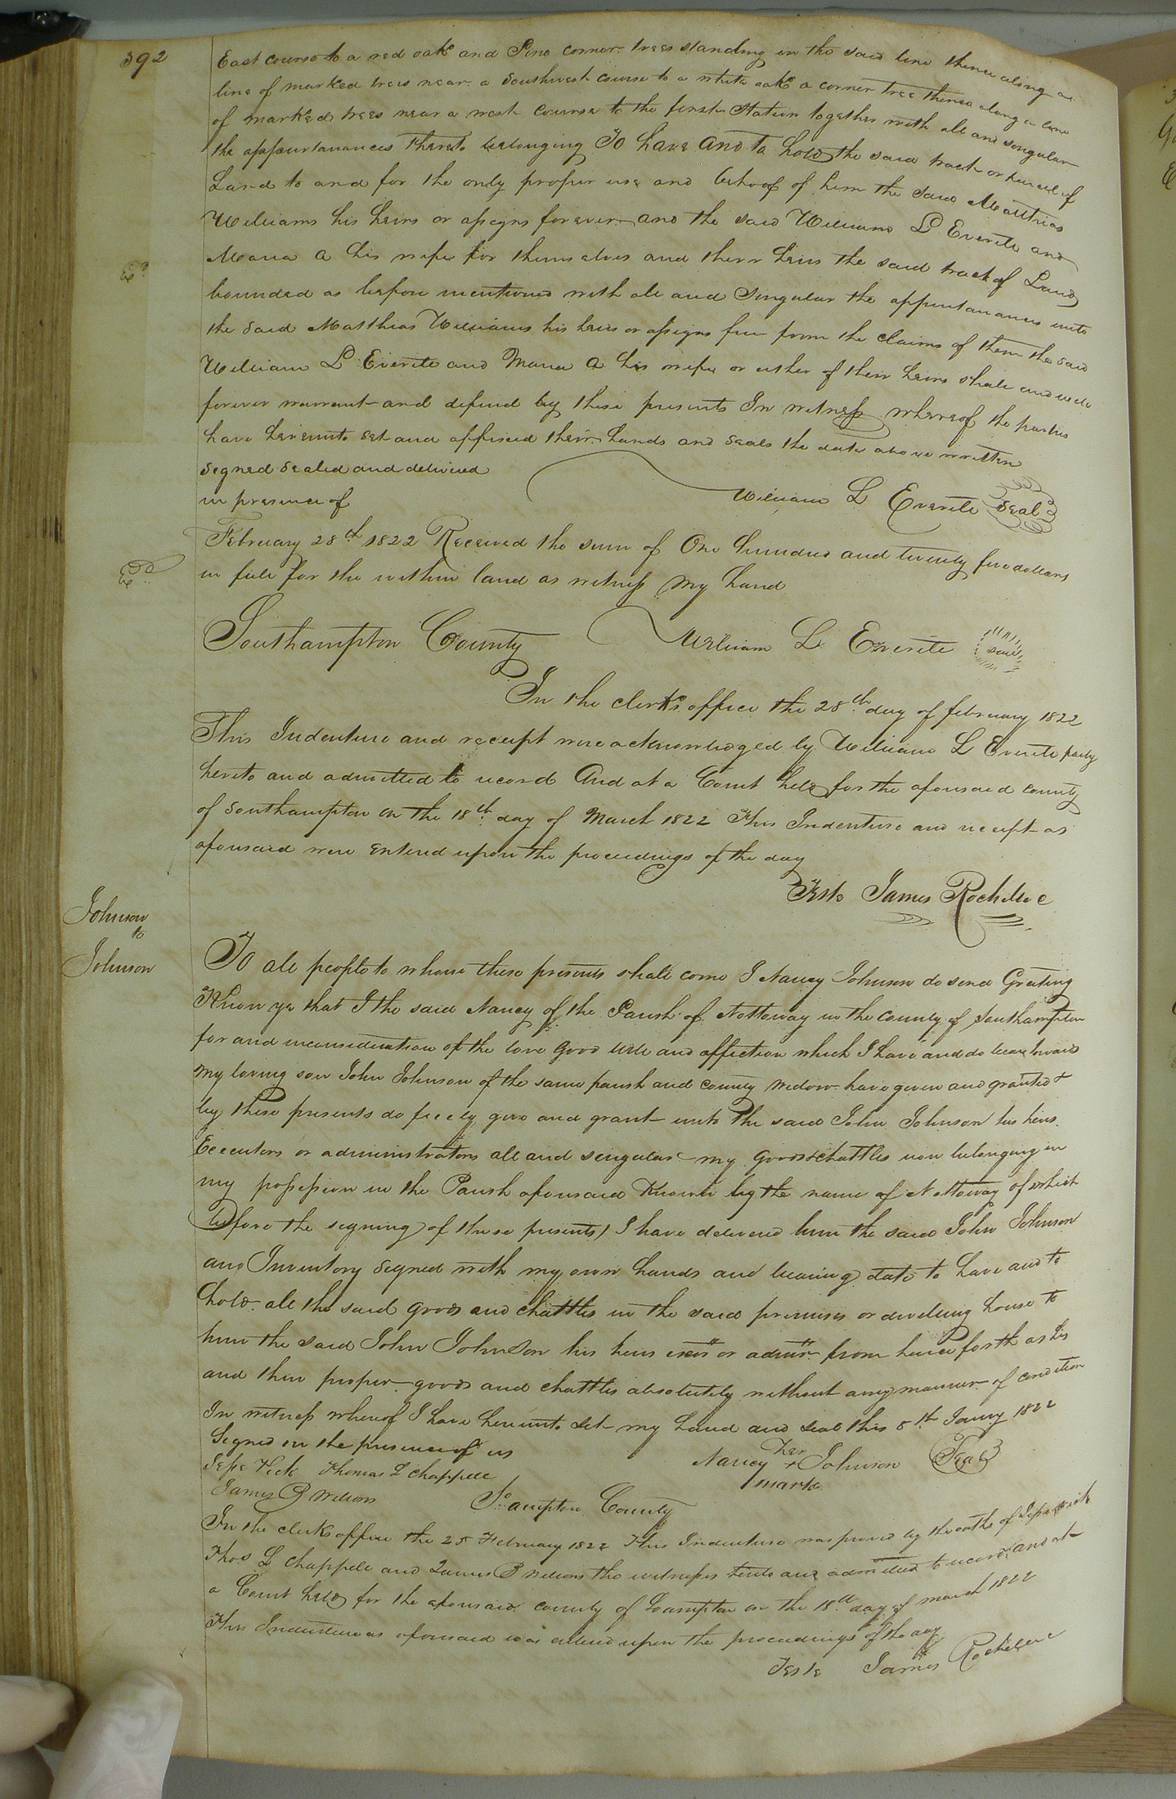 392
East course to a red oak and Pine corner trees standing in the said line thence along a
line of marked trees near a Southwest course to a white oak a corner tree thence along a line
of marked trees near a west course to the first Station together with all and singular
the appurtanances thereto belonging To have and to hold the said tract or parcel of
Land to and for the only proper use and behoof of him the said Matthias
Williams his heirs or assigns forever and the said William L Everite and
Maria A his wife for themselves and their heirs the said tract of Land
bounded as before mentioned with all and Singular the appurtanances unto
the said Matthias Williams his heirs or assigns free from the claims of them the said
William L Everite and Maria A his wife or either of their heirs shall and will
forever warrant and defend by these presents In witness whereof the parties
have hereunto set and affixed their hands and seals the date above written
Signed Sealed and delivered
in presence of
William L Everite Seal
February 28th 1822 Received the sum of One hundred and twenty five dollars
in full for the within land as witness my hand
Southampton County William L Everite Seal
In the clerks office the 28th day of february 1822
This Indenture and receipt were acknowledged by William L Everite party
hereto and admitted to record And at a Court held for the aforesaid county
of Southampton on the 18th day of March 1822 This Indenture and receipt as
aforesaid were entered upon the proceedings of the day
Teste James Rochelle
Johnson
to
Johnson
To all people to whome these presents shall come I Nancy Johnson do send Greeting
Know ye that I the said Nancy of the Parish of Nottoway in the county of Southampton
for and inconsideration of the love Good Will and affection which I have and do bear towards
my loving son John Johnson of the same parish and county Widow have given and granted &
by these presents do freely give and grant unto the said John Johnson his heirs
Executors or administrators all and singular my goods & chattles now belonging in
my possession in the Parish aforesaid Known by the name of Nottoway of which
(before the signing of these presents) I have delivered him the said John Johnson
and Inventory Signed with my own hands and bearing date to have and to
hold all the said goods and chattles in the said premises or dwelling house to
him the said John Johnson his heirs exors or admrs from hence forth as his
and their proper goods and chattles absolutely without any manner of condition
In witness whereof I have hereunto set my hand and seal this 5th Jany 1822
Signed in the presence of us
Nancy her + mark Johnson Seal
Jesse Vick Thomas L Chappell
James B Nelson
So.ampton County
In the clerks office the 25 February 1822 This Indenture was proved by the oaths of Jesse Vick
Thos L Chappell and James B Nelson the witnesses hereto and admitted to record and at
a Court held for the aforesaid county of Soampton on the 18th day of march 1822
This Indenture as aforesaid was entered upon the proceedings of the day
Teste James Rochelle